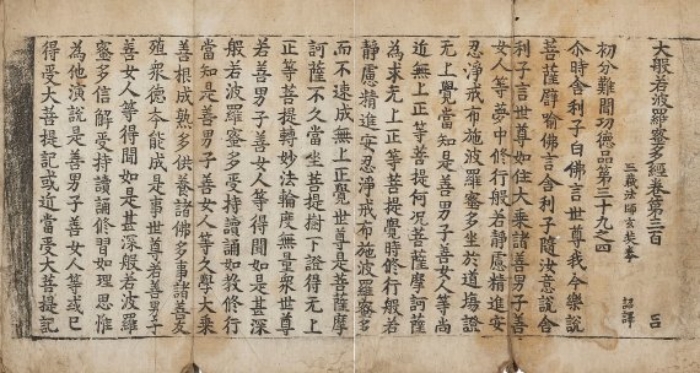 大般若波羅蜜多經卷第三百 呂
三藏法師玄奘奉 詔譯
初分難聞功德品第三十九之四
尒時舍利子白佛言世尊我今樂說
菩薩譬喻佛言舍利子隨汝意說舍
利子言世尊如住大乘諸善男子善
女人等夢中修行般若靜慮精進安
忍淨戒布施波羅蜜多坐於道場證
无上覺當知是善男子善女人等尚
近無上正等菩提何況菩薩摩訶薩
為求无上正等菩提覺時修行般若
靜慮精進安忍淨戒布施波羅蜜多
而不速成無上正覺世尊是菩薩摩
訶薩不久當坐菩提樹下證得无上
正等菩提轉妙法輪度無量衆世尊
若善男子善女人等得聞如是甚深
般若波羅蜜多受持讀誦如教修行
當知是善男子善女人等久學大乘
善根成熟多供養諸佛多事諸善友
殖衆德夲能成是事世尊若善男子
善女人等得聞如是甚深般若波羅
蜜多信解受持讀誦修習如理思惟
為他演說是善男子善女人等或已
得受大菩提記或近當受大菩提記